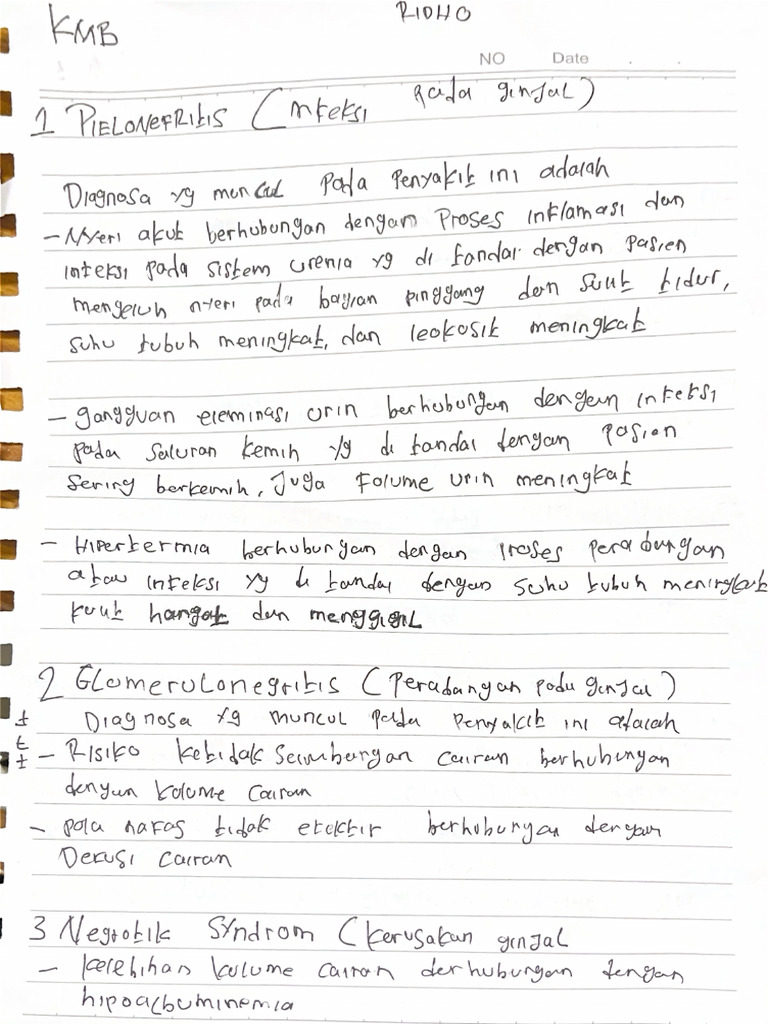 KMB
RIDHO
NO Date
1 PIELONEFRITIS (infeksi pada ginjal)
Diagnosa yg muncul pada Penyakit ini adalah
- Nyeri akut berhubungan dengan Proses inflamasi dan
infeksi pada sistem urenia yg di tandai dengan pasien
mengeluh nyeri pada bagian pinggang dan sulit tidur,
suhu tubuh meningkat, dan leokosit meningkat
- gangguan eleminasi urin berhubungan dengan infeksi
pada saluran kemih yg di tandai dengan pasien
sering berkemih, Juga Folume urin meningkat
- Hipertermia berhubungan dengan proses peradangan
atau infeksi yg di tandai dengan suhu tubuh meningkat
kulit hangat dan menggigil
2 Glomerulonegritis (Peradangan pada ginjal)
Diagnosa yg muncul pada Penyakit ini adalah
t
t
t
- Risiko ketidak seimbangan cairan berhubungan
dengan Volume cairan
- pola nafas tidak efektif berhubungan dengan
Defusi cairan
3 Negrotik Syndrom (kerusakan ginjal
- kelebihan volume cairan berhubungan dengan
hipoalbuminemia